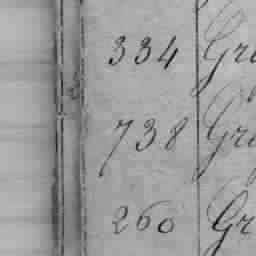 334 Gr
738 Gr
260 Gr